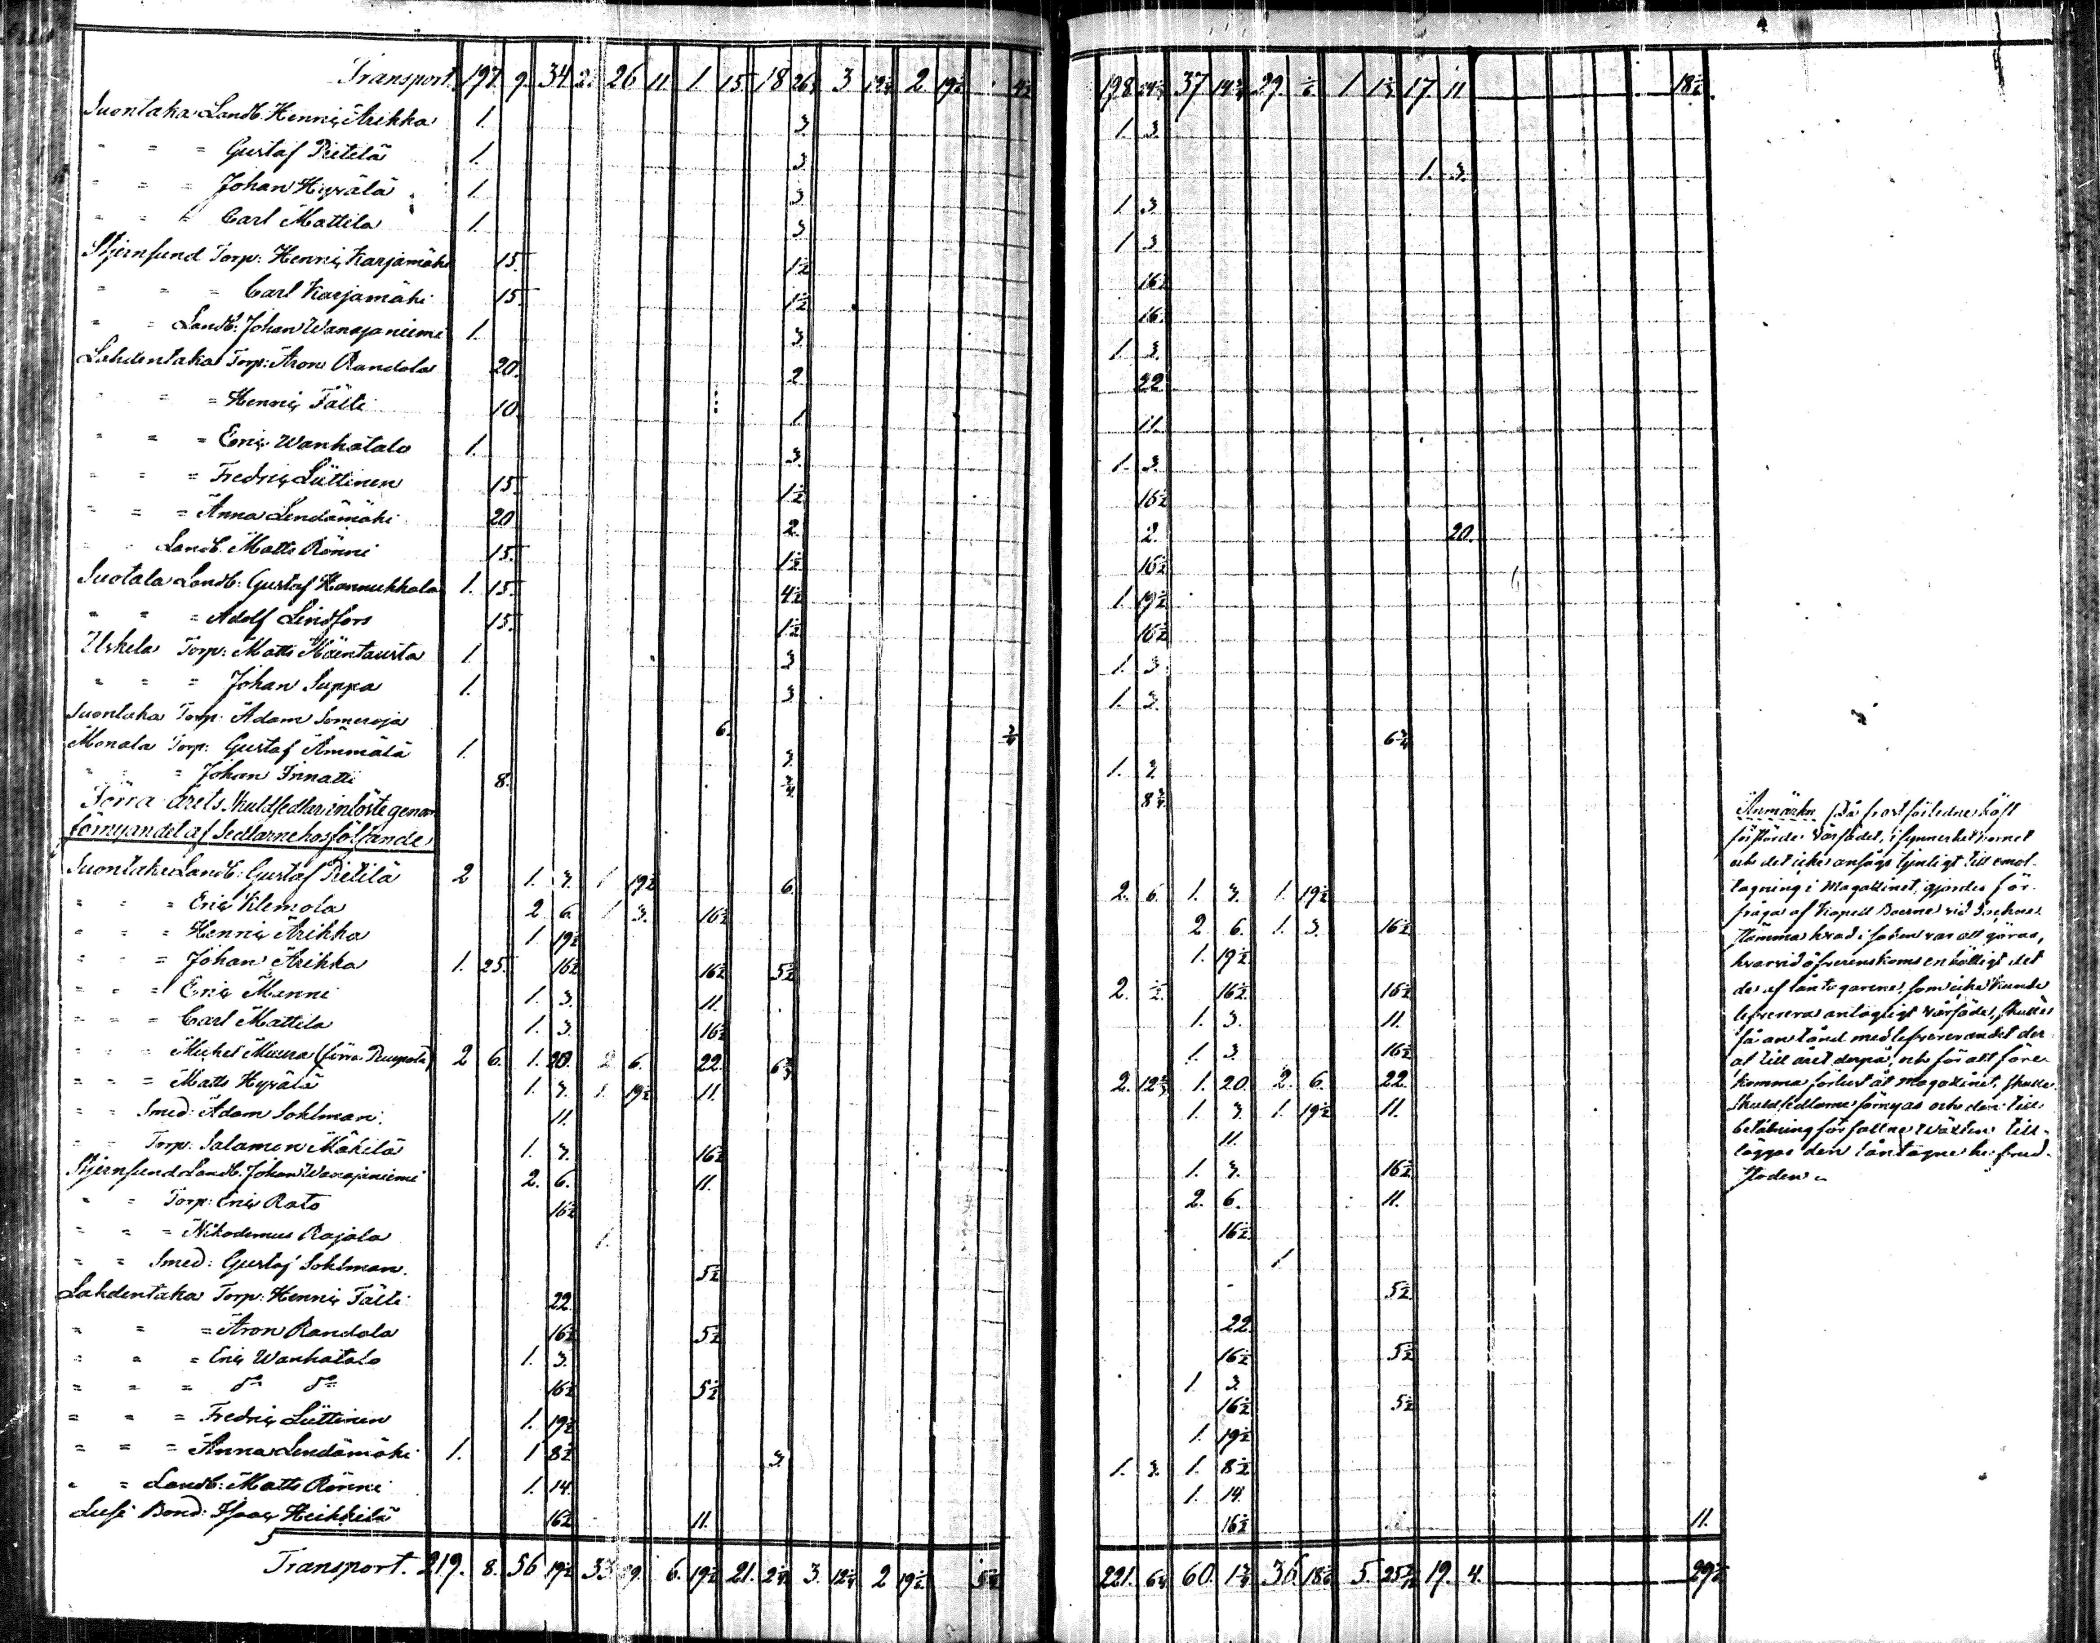 Transport. 197. 9. 34 2. 26 11. 1 15. 18 26¼ 3 12¾ 2 19½ 4½ 198 24¾ 37 14¾ 29. ½ 1 1¾ 17. 11 18½
Suontaka Landb. Henric Arikka 1. 3 1. 3.
" = = Gustaf Pietilä 1. 3 1. 3.
" = = Johan Hyvälä 1. 3. 1 3.
" = " Carl Mattila 1. 3 1 3
Stjernsund Torp: Henric Karjamäki 15. 1½ 16½
" " = Carl Karjamäki 15. 1½ 16.
" = Landb: Johan Wanajaniemi 1. 3. 1. 3.
Lahdentaka Torp: Aron Randala 20. 2 22
" " = Henric Tälli 10. 1. 11.
" = = Eric Wanhatalo 1. 3. 1. 3.
" = = Fredric Lüttinen 15. 1½ 16½
" = = Anna Lendämäki 20 2. 2. 20.
" = Landb. Matts Rönni 15. 1½ 16½
Suotala Landb: Gustaf Hannukkala 1. 15. 4½ 1 19½
" " = Adolf Lindfors 15. 1½ 16½
Uskela Torp: Matts Mäentausta 1. 3 1. 3.
" = = Johan Suppa 1. 3 1. 3.
Suontaka Torp: Adam Someroja 6. ¾ 6¾
Monala Torp: Gustaf Ämmälä 1. 3. 1. 3.
" " = Johan Innatti 8. ¾ 8¾
Förra årets Skuldsedlar inlöste genom
förnyandet af Sedlarne hos följande
Suontaka Landb: Gustaf Pietilä 2 1. 3. 1 19½ 6. 2. 6. 1. 3. 1. 19½
" = = Eric Klemola 2. 6. 1 3. 16½ 2. 6. 1. 3. 16½
" = = Henric Arikka 1. 19½ 1. 19½
" = = Johan Arikka 1. 25. 16½ 16½ 5½ 2. ½ 16½ 16½
" = = Eric Manni 1. 3. 11. 1. 3. 11.
" = = Carl Mattila 1. 3. 16½ 1. 3. 16½
" = = Michel Muura (förra Ruupala) 2 6. 1. 20. 2 6. 22. 6¾ 2. 12¾ 1. 20 2. 6. 22.
" = = Matts Hyvälä 1. 3. 1. 19½ 11. 1. 3. 1. 19½ 11.
" = Smed: Adam Sohlman. 11. 11.
" = Torp: Salamon Mäkilä 1. 3. 16½ 1. 3. 16½
Stjernsund Landb. Johan Wanajaniemi 2. 6. 11. 2. 6. 11.
" = Torp: Eric Rato 16½ 16½
" = = Nikodemus Rajala 1. 1
" = Smed: Gustaf Sohlman. 5½ 5½
Lahdentaka Torp: Henric Tälli 22. 22.
" " = Aron Randala 16½ 5½ 16½ 5½
" " = Eric Wanhatalo 1. 3. 1 3
" = = d:o d:o 16½ 5½ 16½ 5½
" = = Fredric Lüttinen 1. 19½ 1. 19½
" = = Anna Lendämäki 1. 1 8½ 3. 1. 3. 1. 8½
" = Landb: Matts Rönni 1. 14. 1. 14.
Lusi Bond: Isaac Heikkilä 16½ 11. 16½ 11.
Transport. 219. 8. 56 19½ 33 6. 19½ 21. 2¼ 3. 12¾ 2 19½ 5¼ 221. 6¾ 60. 1¾ 36 18½ 5. 19. 4. 29½
Anmärkn. Då frost förledne höst
förstörde vårsädet, i synnerhet kornet
och det icke ansågs tjenligt till emot-
tagning i Magasinet, gjordes för-
fråga af Kapell Boerne vid Sockne-
stämma hvad i saken var att göras,
hvarvid öfverenskoms enhälligt att
de af låntagarene, som icke kunde
leverera antagligt vårsäde, skulle
få anstånd med levererandet der
af till året derpå, och för att före-
komma förlust åt Magasinet, skulle
Skuldsedlarne förnyas och den till
betalning förfallne växten till-
läggas den låntagne hufvud-
stoden.